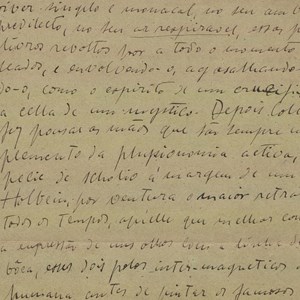 viver singelo e monacal, no seu am
predilecto, no seu ar respiravel, essas p
livros revoltos por a todo o momento
leados, e envolvendo-o, agasalhando-
do-o, como o espirito de um crucifi
a cella de um mystico. Depois, Col
fez pousar as mãos que são sempre u
plemento da physionomia activa,
pecie de scholio á margem de um
Holbein, por ventura o maior retra
todos os tempos, aquelle que melhor com
a expressão de uns olhos com a linha d
bôca, esses dois polos inter-magneticos
humana antes de pintar os famosos